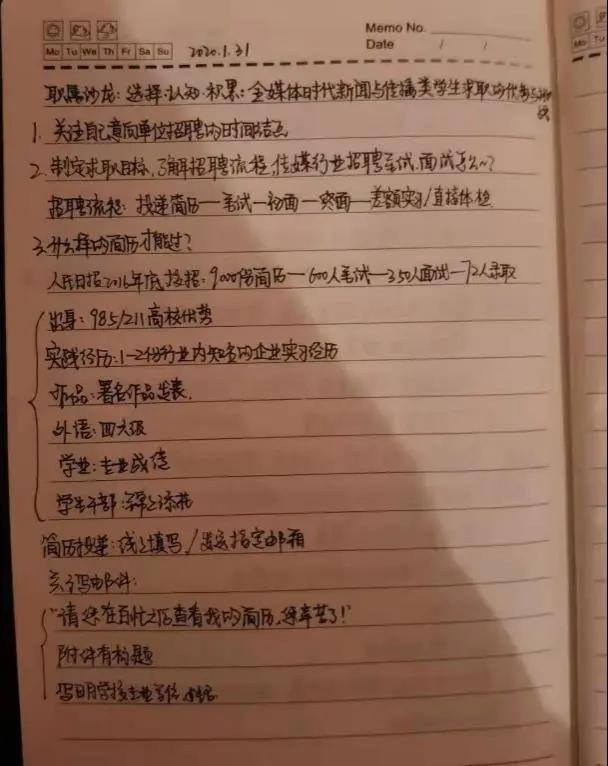 Memo No.
Mo Tu We Th Fr Sa Su 2020.1.31 Date / /
职属沙龙：选择·认知·积累：全媒体时代新闻与传播类学生求职的优势与
1. 关注自己意向单位招聘的时间结点
2. 制定求职目标，了解招聘流程，传媒行业招聘笔试、面试怎么～？
招聘流程：投递简历—笔试—初面—终面—差额实习/直接体检
3. 什么样的简历才能过？
人民日报2016年底校招：9000份简历—600人笔试—350人面试—72人录取
出身：985/211高校优势
实践经历：1-2份行业内知名的企业实习经历
作品：署名作品发表
外语：四六级
学业：专业成绩
学生干部：锦上添花
简历投递：线上填写/发送指定邮箱
学写邮件：
"请您在百忙之后查看我的简历，您辛苦了！"
附件有标题
写明学校专业学位、姓名